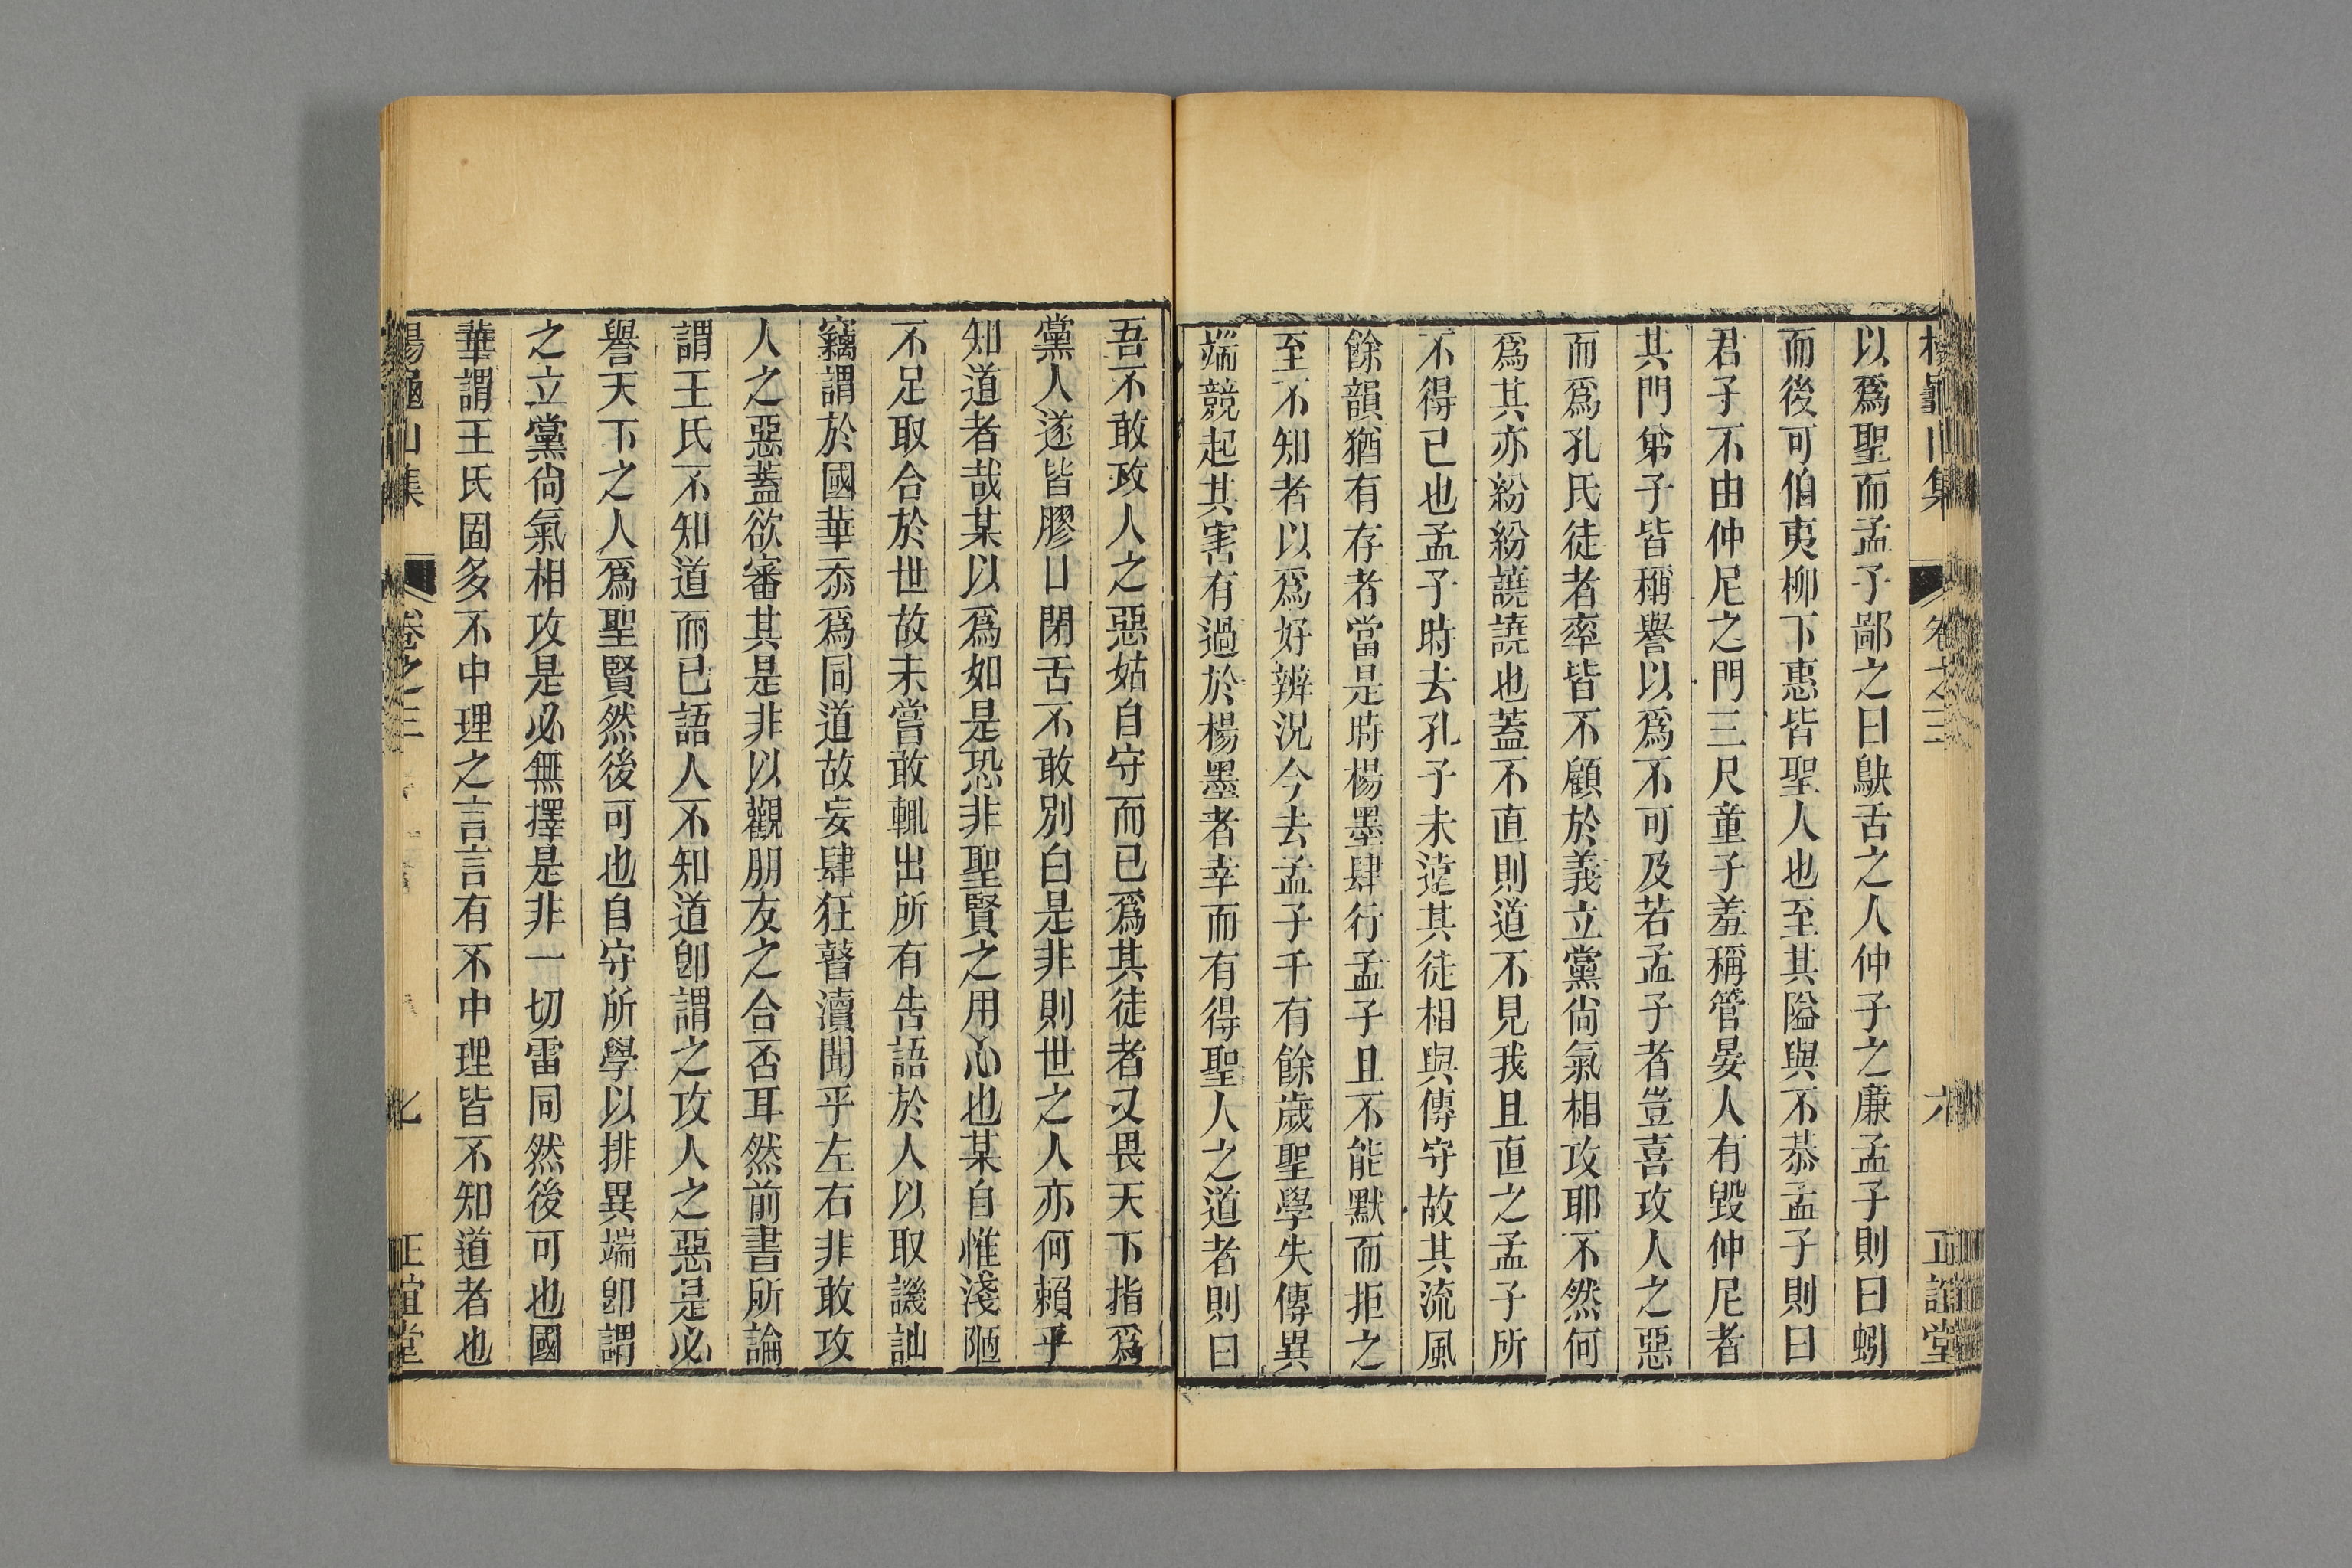 以爲聖而孟子鄙之曰鴃舌之人仲子之廉孟子則曰蚓
而後可伯夷柳下惠皆聖人也至其隘與不恭孟子則曰
君子不由仲尼之門三尺童子羞稱管晏人有毀仲尼者
其門弟子皆稱譽以爲不可及若孟子者豈喜攻人之惡
而爲孔氏徒者率皆不顧於義立黨尚氣相攻耶不然何
爲其亦紛紛譊譊也蓋不直則道不見我且直之孟子所
不得已也孟子時去孔子未遠其徒相與傳守故其流風
餘韻猶有存者當是時楊墨肆行孟子且不能默而拒之
至不知者以爲好辨況今去孟子千有餘歲聖學失傳異
端競起其害有過於楊墨者幸而有得聖人之道者則曰
吾不敢攻人之惡姑自守而已爲其徒者又畏天下指爲
黨人遂皆膠口閉舌不敢別白是非則世之人亦何賴乎
知道者哉某以爲如是恐非聖賢之用心也某自惟淺陋
不足取合於世故未嘗敢輒出所有告語於人以取譏訕
竊謂於國華忝爲同道故妄肆狂瞽瀆聞乎左右非敢攻
人之惡蓋欲審其是非以觀朋友之合否耳然前書所論
謂王氏不知道而已語人不知道卽謂之攻人之惡是必
譽天下之人爲聖賢然後可也自守所學以排異端卽謂
之立黨尚氣相攻是必無擇是非一切雷同然後可也國
華謂王氏固多不中理之言言有不中理皆不知道者也
楊龜山集 卷之三 七 正誼堂